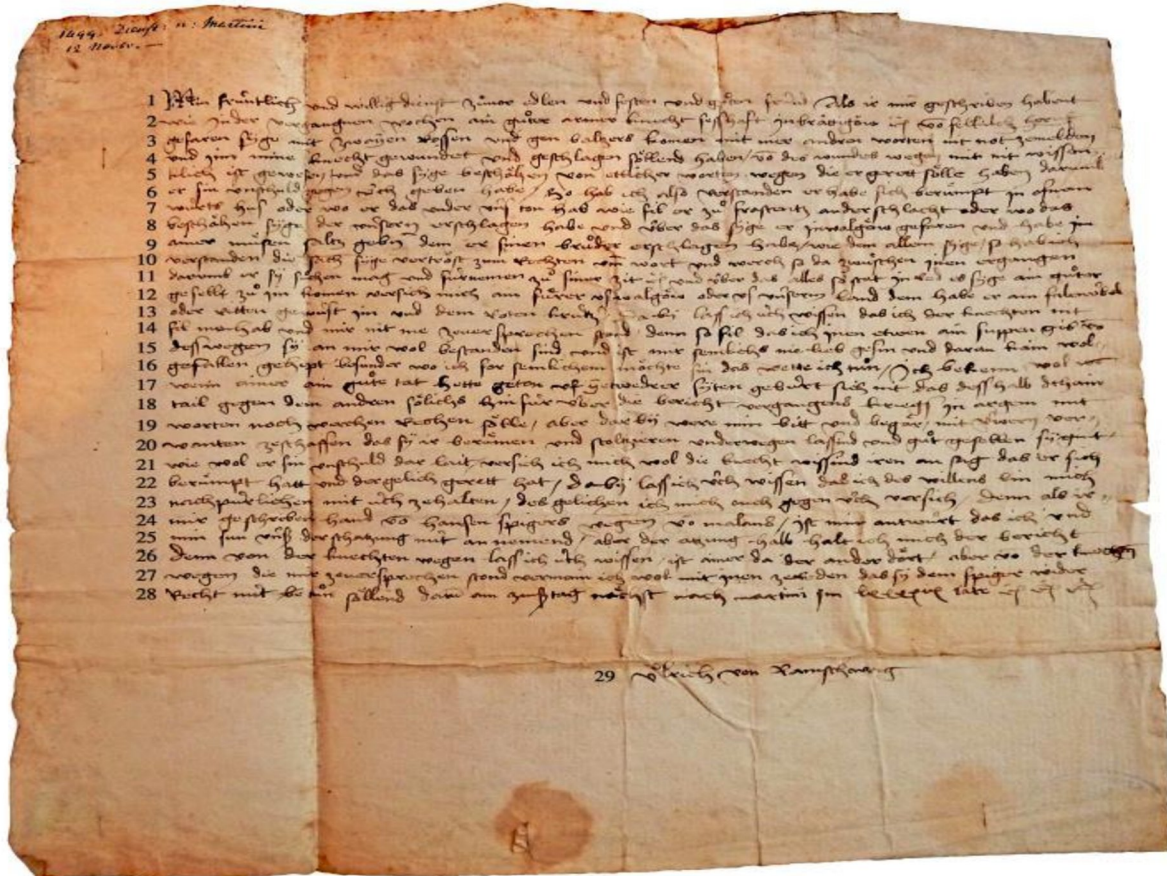 1499. Dienst: n: Martini
12 Novbr. —
1 Min früntlich und willig dienst zůuor edlen und festen und gůten fründ Als ir mir geschriben habent
2 wie In der vergangnen wochen ain gůter armer knecht sesshaft
3 gefaren syge mit zwayen rossen und gen balzers komen mit mer andren worten nit not zemelden
4 und im mine knecht gewundet und geschlagen söllend haben / des wundes wegen mir nit wissen
5 tlich ist gewesen und das syge beschähen von ettlicher worten wegen die er gerett sölle haben darumb
6 er sin unschuld gegen üch geben habe / So hab ich also verstanden er habe sich berümpt in ainem
7 wirts hus oder wo er das under uns ton hab wie fil er zů frastentz anderschlacht oder wo das
8 beschähen syge der unsern erschlagen habe und über das syge er in walgöw gefaren und habe im
9 ainer můsen saltz gebn dem er sinen brůder erschlagen habe / wie dem allem syge / so hab ich
10 verstanden die sach syge vertröst zum Rechten umb wort und werch so da zwüschen inen ergangen
11 darumb er sy sůchen mag und fürnemen zů siner zit und über das alles so syge ain gůter
12 gesell zů im komen versich mich am fürer us walgöw oder us unserm land dem habe er
13 oder ritten im und dem Roten / Da bij lass ich üch wissen das ich der knechten nit
14 fil mer hab und mir nit me zeuersprechen stand / denn so fil das ich inen etwen ain suppen gib
15 desswegen sy an mir wol bestanden sind und ist mir semlichs nie lieb gesin und daran kain wol
16 gefallen gehept besunder wo ich for semlichem möchte sin das wette ich tůn / Ich bekenn wol
17 wenn ainer ain gůte tat hette geton uf yetwedrer syten gebürt sich nit das dess halb dehain
18 tail gegen dem andren sölichs hinfür über die bericht vergangens kriegs in argem mit
19 worten noch werchen Rechen sölle / aber dar bij were min bitt und begär mit üwern ver
20 wanten zeschaffen das sy ir berümen und stolzieren underwegen lassind und gůt gesellen sygint
21 wie wol er sin unschuld dar lait versich ich mich wol die knecht wissind iren an sag das er sich
22 berümpt hatt und der gelich gerett hat / da bij lass ich üch wissen das ich des willens bin mich
23 nachpürlichen mit üch zehalten / des gelichen ich mich och gegen üch versich / denn als ir
24 mir geschriben hand von hansen spigers wegen von malans / ist min antwurt das ich und
25 min sun uns der schatzung nit an nemend / aber der atzung halb halt ich mich der bericht
26 denn von der knechten wegen lass ich üch wissen / ist ainer da der ander dört / aber von der knechten
27 wegen die mir zeuersprechen stond vermain ich wol mit inen zereden das sy dem spiger wider
28 Recht nit tůn söllend datum am zinstag nächst nach martini im lxxxxviiij iare
29 Ůlrich von Ramschwag